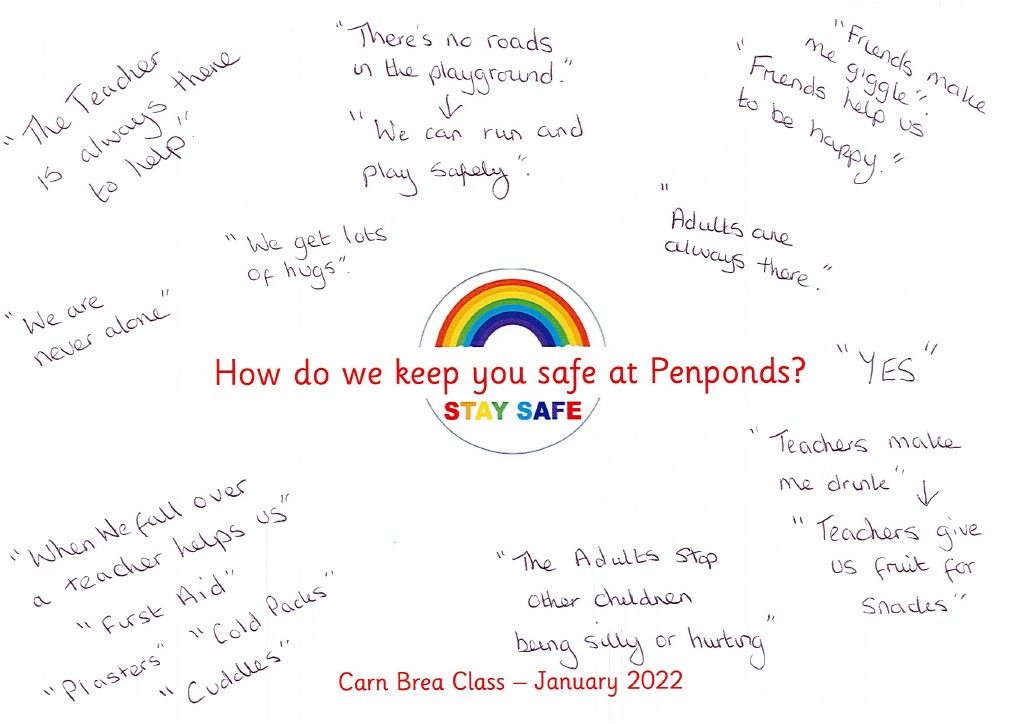 "The Teacher
is always there
to help"
"There's no roads
in the playground."
↓
"We can run and
play safely".
"Friends make
me giggle".
"Friends help us
to be happy."
"We get lots
of hugs".
"Adults are
always there."
"We are
never alone"
How do we keep you safe at Penponds?
STAY SAFE
"YES"
"Teachers make
me drink"
↓
"Teachers give
us fruit for
snacks"
"When We fall over
a teacher helps us"
"First Aid"
"Plasters" "Cold Packs"
"Cuddles"
"The Adults stop
other children
being silly or hurting"
Carn Brea Class – January 2022